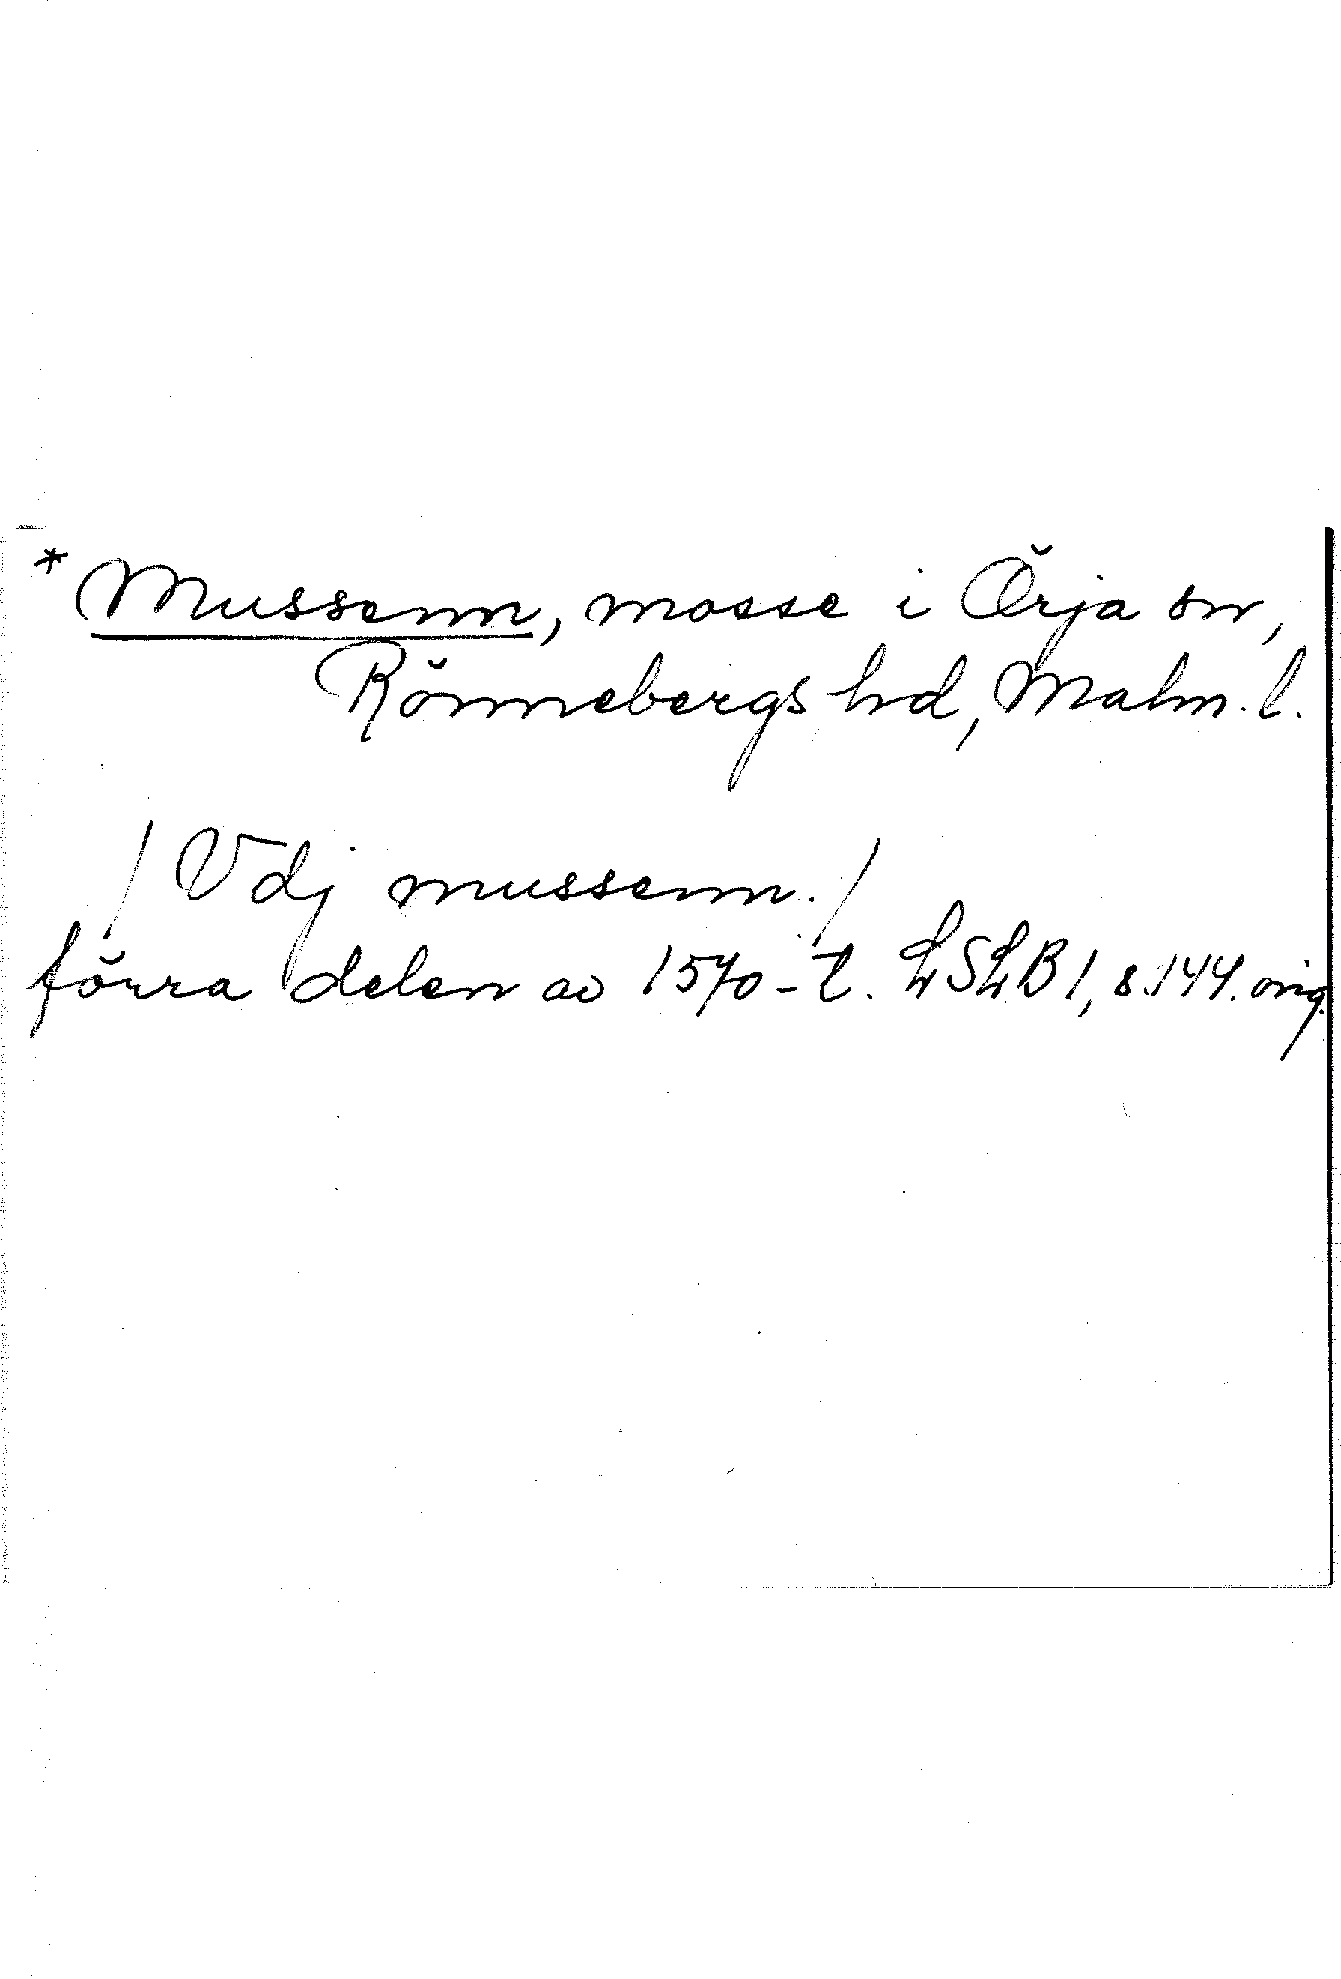 * Mussenn, mosse i Örja sn,
Rönnebergs hd, Malm. l.
/ Vdj mussenn. /
förra delen av 1570-t. LSLB 1, s. 144. orig.